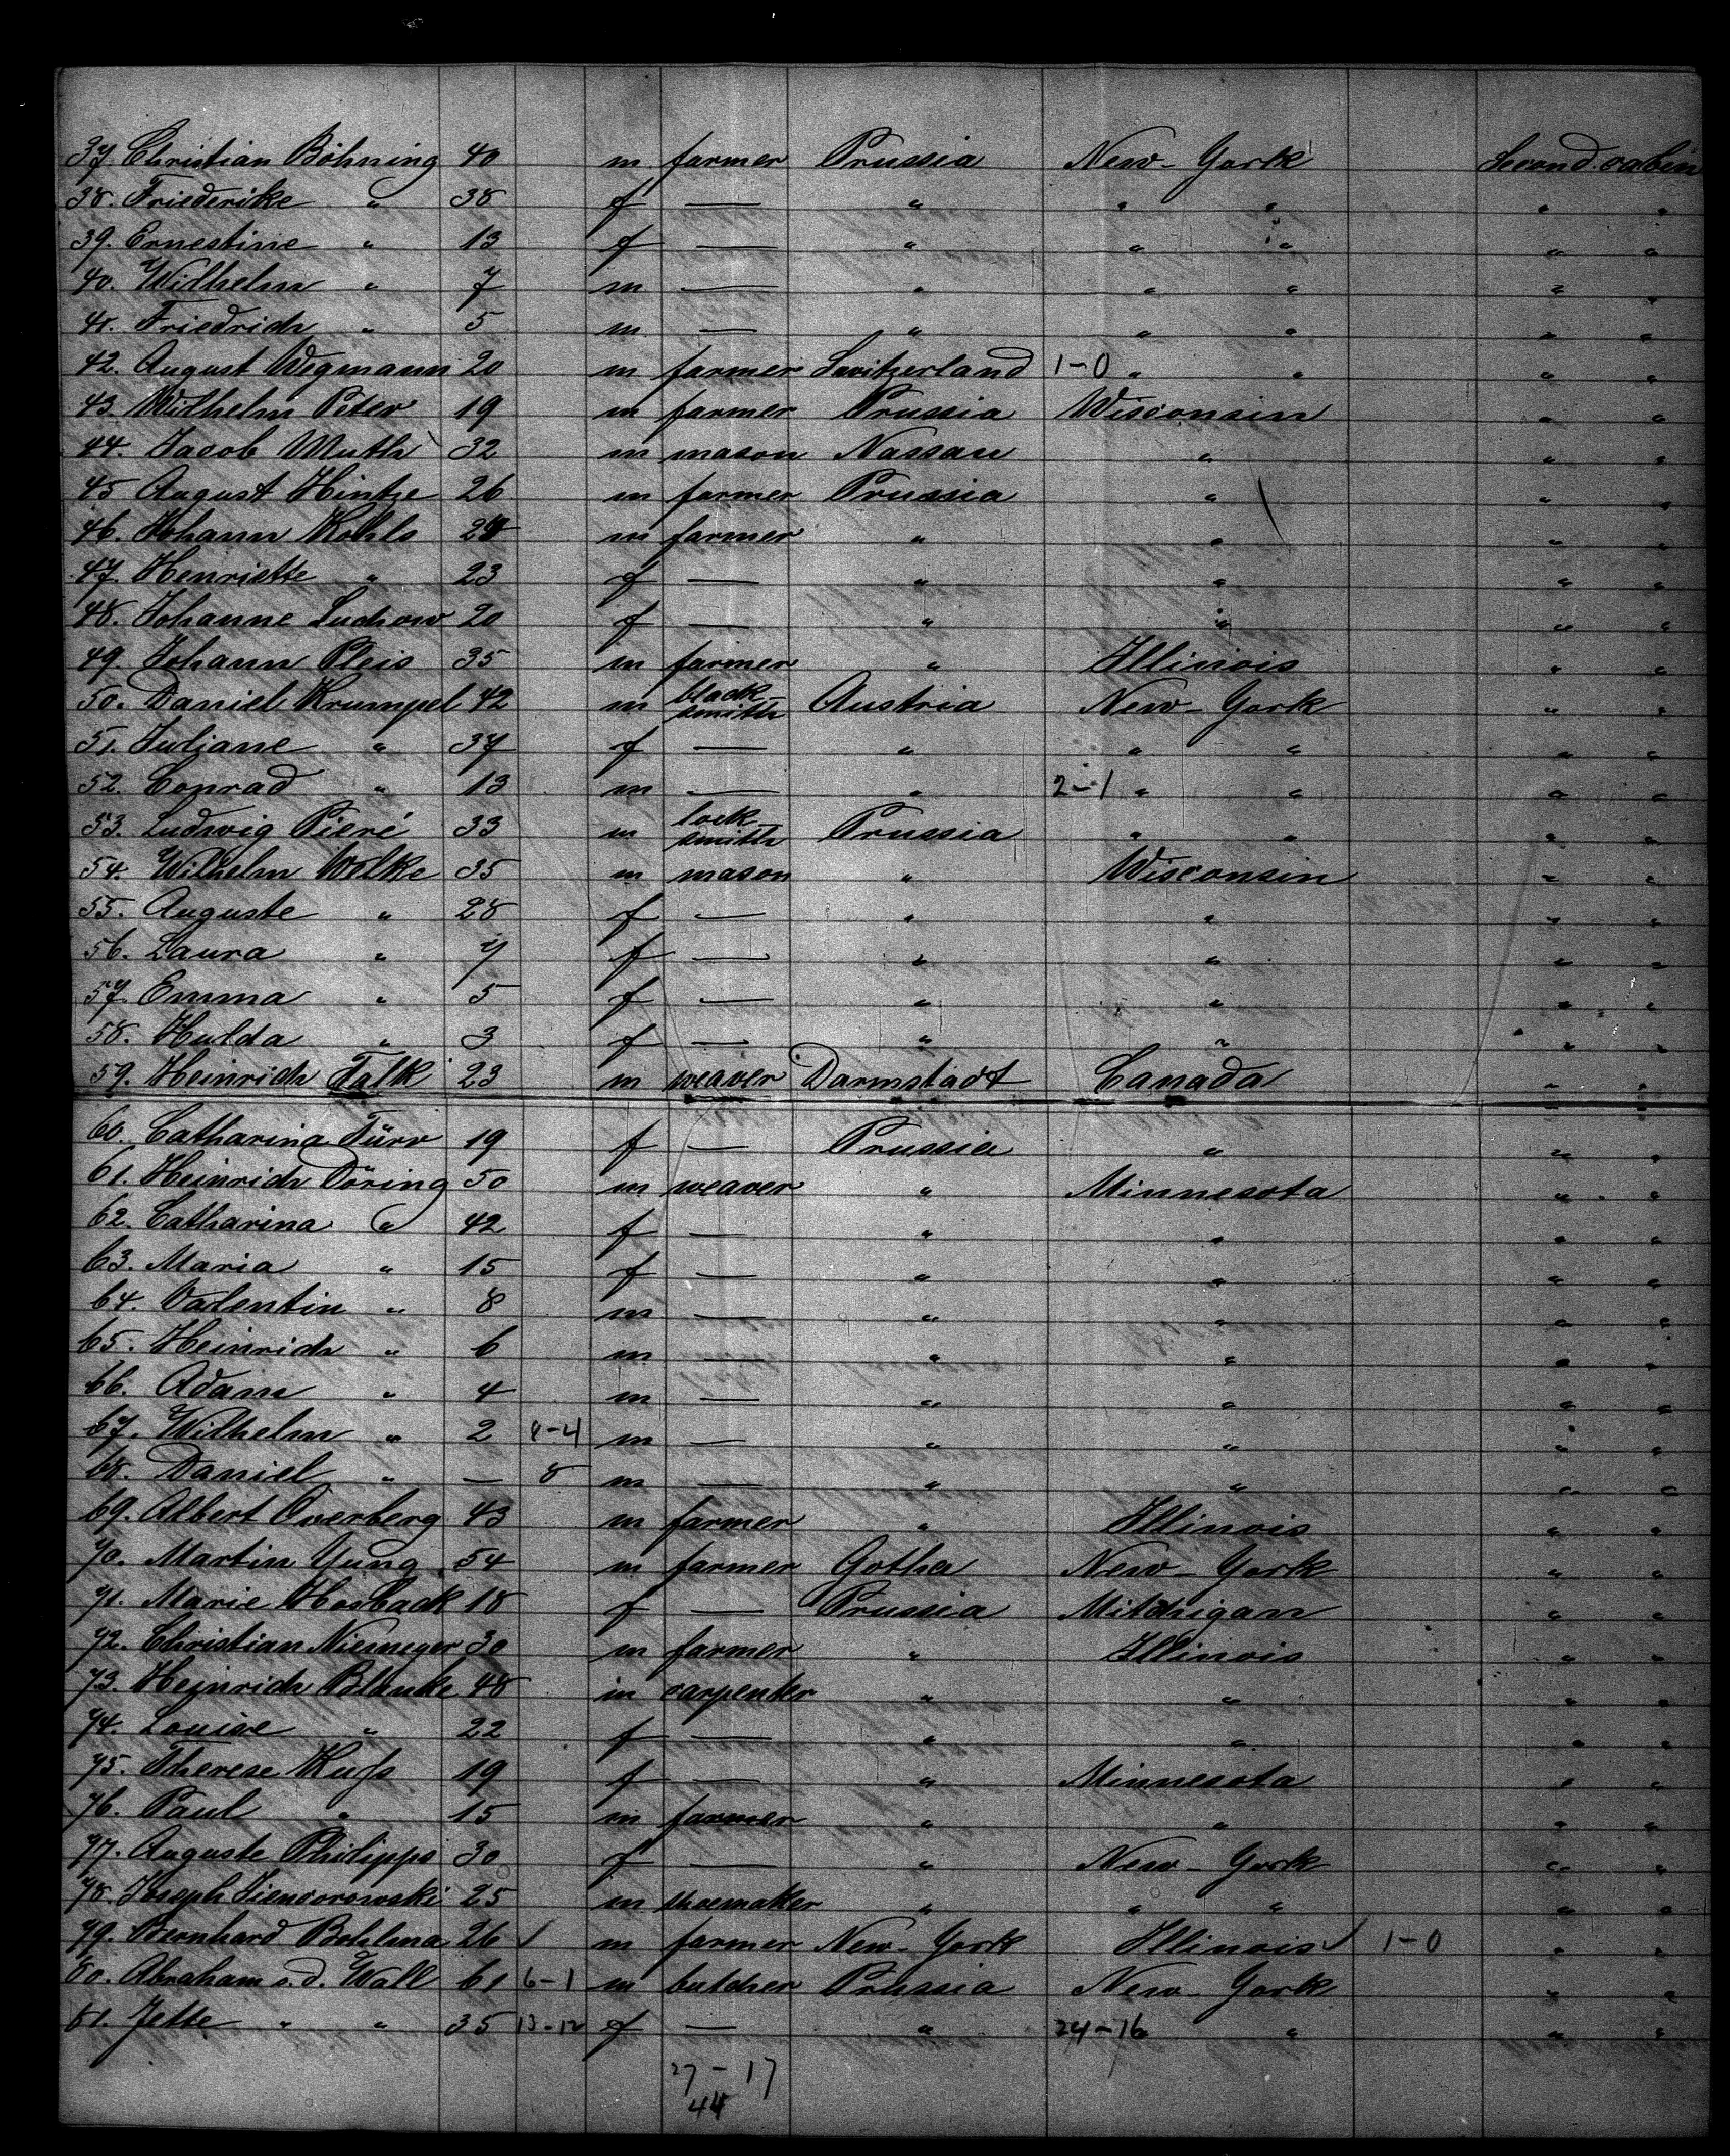 37 Christian Böhning 40 m farmer Prussia New-York Second cabin
38. Friederike " 38 f — " " " " "
39. Ernestine " 13 f — " " " " "
40. Wilhelm " 7 m — " " " " "
41. Friedrich " 5 m — " " " " "
42. August Wegmann 20 m farmer Switzerland 1-0 " " " "
43. Wilhelm Peter 19 m farmer Prussia Wisconsin " "
44. Jacob Muth 32 m mason Nassau " " "
45 August Hintze 26 m farmer Prussia " " "
46. Johann Kohls m farmer " " " "
47. Henriette " 23 f — " " " "
48. Johanne Luchow 20 f — " " " "
49. Johann Pleis 35 m farmer " Illinois " "
50. Daniel Krumpel 42 m black-smith Austria New-York " "
51. Juliane " 37 f — " " " " "
52. Conrad " 13 m — " 2-1 " " " "
53. Ludwig Pieré 33 m lock-smith Prussia " " " "
54. Wilhelm Welke 35 m mason " Wisconsin " "
55. Auguste " 28 f — " " " "
56. Laura " 7 f — " " " "
57. Emma " 5 f — " " " "
58. Hulda " 3 f — " " " "
59. Heinrich Falk 23 m weaver Darmstadt Canada " "
60. Catharina Türr 19 f — Prussia " " "
61. Heinrich Döring 50 m weaver " Minnesota " "
62. Catharina " 42 f — " " " "
63. Maria " 15 f — " " " "
64. Valentin " 8 m — " " " "
65. Heinrich " 6 m — " " " "
66. Adam " 4 m — " " " "
67. Wilhelm " 2 m — " " " "
68. Daniel " — 8 m — " " " "
69. Albert Overberg 43 m farmer " Illinois " "
70. Martin Yung 54 m farmer Gotha New-York " "
71. Marie Hosback 18 f — Prussia Mitchigan " "
72. Christian Niemeyer 30 m farmer " Illinois " "
73. Heinrich Blanke 48 m carpenter " " " "
74. Louise " 22 f — " " " "
75. Therese Kuſs 19 f — " Minnesota " "
76. Paul " 15 m farmer " " " "
77. Auguste Philipps 30 f — " New-York " "
78. Joseph 25 m shoemaker " " " " "
79. Bernhard Bohlma 26 m farmer New-York Illinois 1-0 " "
80. Abraham v. d. Wall 61 6-1 m butcher Prussia New-York " "
81. Jette " " 35 13-12 f — " 24-16 " " "
27-17
44